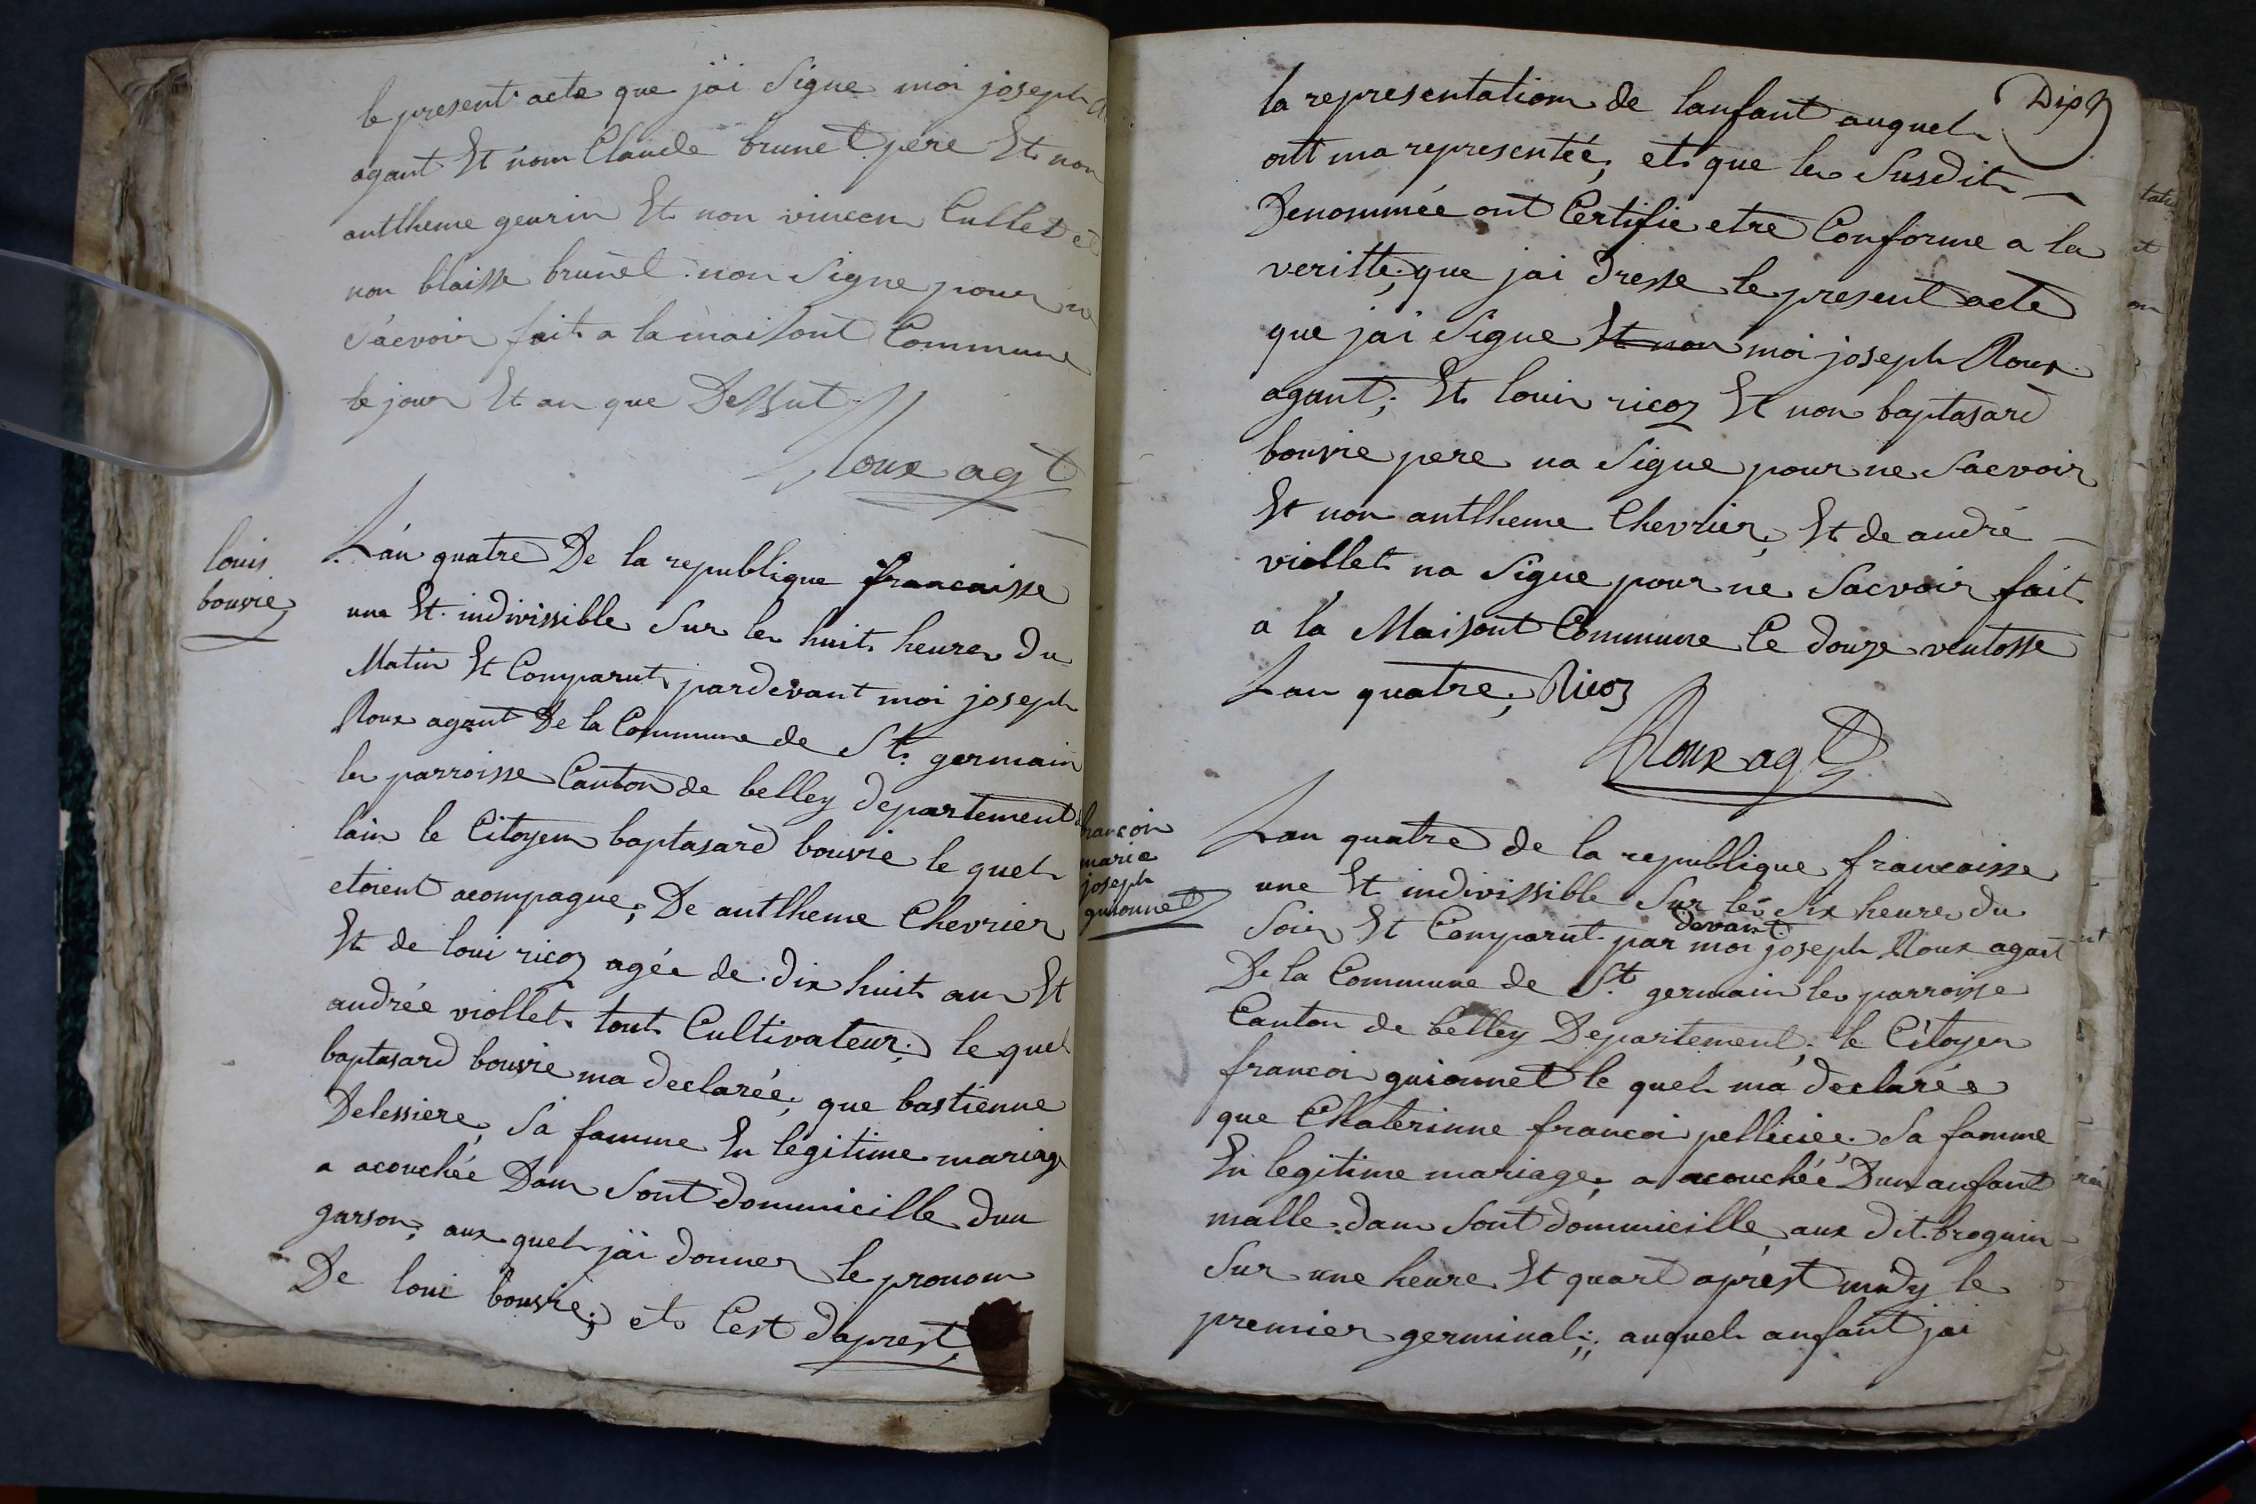 le present acte que jai Signe moi joseph
agant Et nom Claude brunet pere Et non
antlheme geurin Et non vincen Cullet et
non blaisse brunet non Signe pour ne
Sacvoir fait a la maisont Commune
le jour Et an que Dessut
Roux agt
louis
bouvie
Lan quatre De la republique francaisse
une Et indivissible Sur les huit heures du
Matin Et Comparut pardevant moi joseph
Roux agant De la Commune de St. germain
les parroisse Canton de belley departement de
lain le Citoyen baptasard bouvie le quel
etoient acompagne; De antlheme Chevrier
Et de loui ricoz agée de dix huit an Et
andrée viollet tout Cultivateur; le quel
baptasard bouvie ma declarée, que bastienne
Delessiere, Sa famme En legitime mariage
a acouchée Dans Sont dommicille dun
garson; aux quel jai donner le pronom
De loui bouvie; et C'est daprest,
Dix
la representation de lanfant auquel
ont ma representée, et que les Susdit
Denommée ont Certifie etre Conforme a la
veritte; que jai dresse le present acte
que jai Signe Et non moi joseph Roux
agant; Et louis ricoz Et non baptasard
bouvie pere na Signe pour ne Sacvoir
Et non antlheme Chevrier, Et de andré
viollet na Signe pour ne Sacvoir fait
a la Maisont Commune Le douze ventosse
Lan quatre; Ricoz
Roux agt
francoi
marie
joseph
guionnet
Lan quatre de la republique francaisse
une Et indivissible Sur les Six heures du
Soir Et Comparut par devant moi joseph Roux agant
De la Commune de St. germain les parroisse
Canton de belley Departement; le Citoyen
francoi guionnet le quel ma declarée
que Chaterinne francoi pelliciee, Sa famme
En legitime mariage, a acouchée Dun anfant
malle dans Sont dommicille aux dit brognin
Sur une heure Et quart aprest midy le
premier germinal;; auquel anfant jai